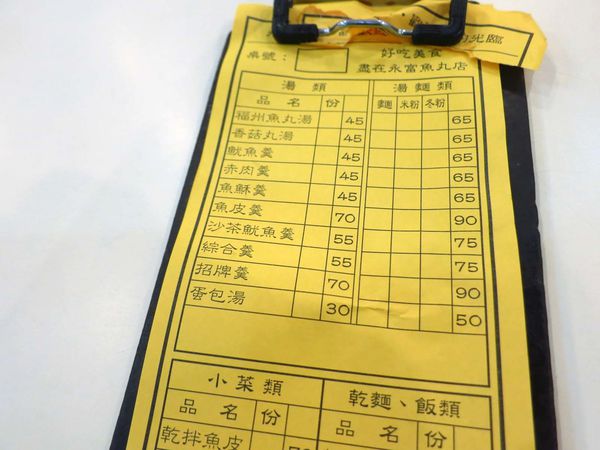 光臨
桌號： 好吃美食
盡在永富魚丸店
湯 類 湯 麵 類
品 名 份 麵 米粉 冬粉
福州魚丸湯 45 65
香菇丸湯 45 65
魷魚羹 45 65
赤肉羹 45 65
魚酥羹 45 65
魚皮羹 70 90
沙茶魷魚羹 55 75
綜合羹 55 75
招牌羹 70 90
蛋包湯 30 50
小 菜 類 乾麵、飯類
品 名 份 品 名 份
乾拌魚皮